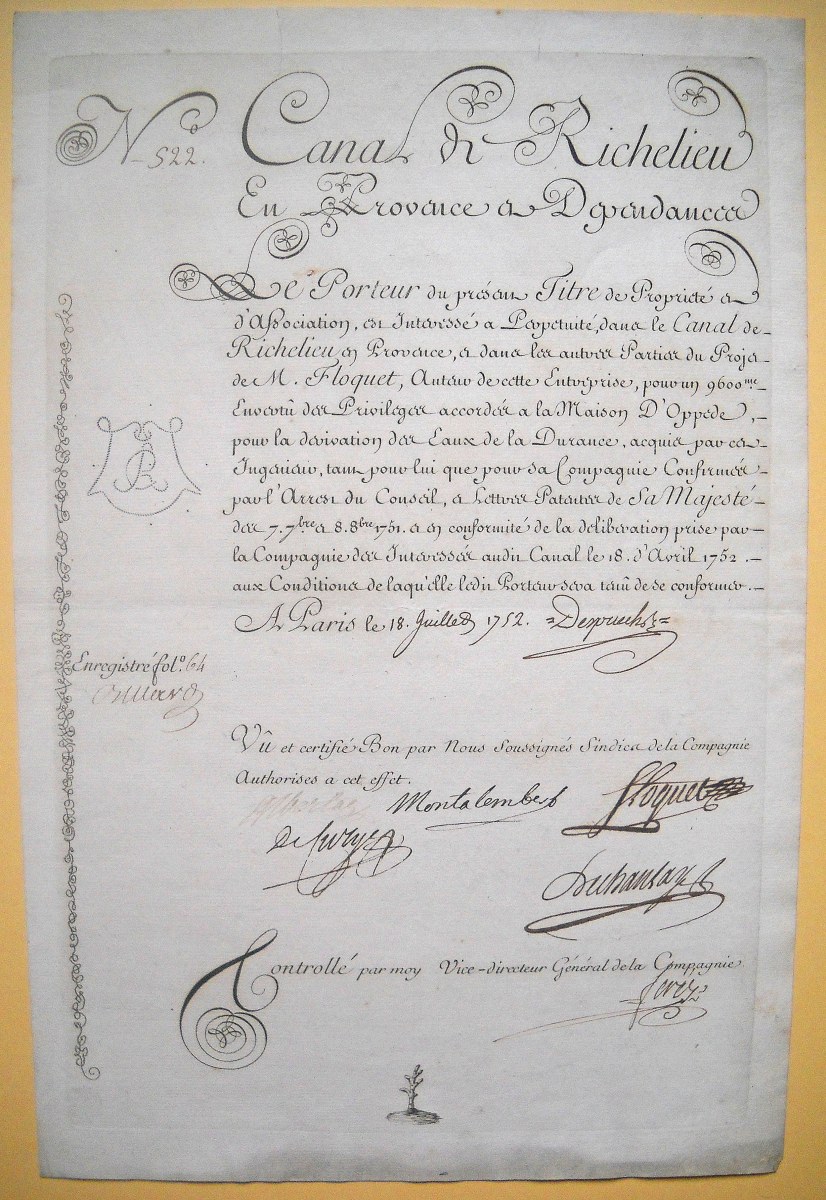 N.º 522.
Canal de Richelieu
En Provence et Dependances
Le Porteur du présent Titre de Propriété et
d'Association, est Interessé a Perpetuité, dans le Canal de
Richelieu en Provence, et dans les autres Parties du Projet
de M. Floquet, Auteur de cette Entreprise, pour un 9600.me
En vertû des Privileges accordés a la Maison D'Oppede,
pour la dérivation des Eaux de la Durance, acquis par cet
Ingenieur, tant pour lui que pour sa Compagnie Confirmés
par l'Arrest du Conseil, et Lettres Patentes de Sa Majesté
des 7. 7bre et 8. 8bre 1751. et en conformité de la déliberation prise par
la Compagnie des Interessés audit Canal le 18. d'Avril 1752.
aux Conditions de laqu'elle ledit Porteur sera tenû de se conformer.
A Paris le 18. Juillet 1752.
Enregistré fol.º 64
Vû et certifié Bon par Nous Soussignés Sindics de la Compagnie
Authorises a cet effet.
Montalembert Floquet
Controllé par moy Vice-directeur Général de la Compagnie.